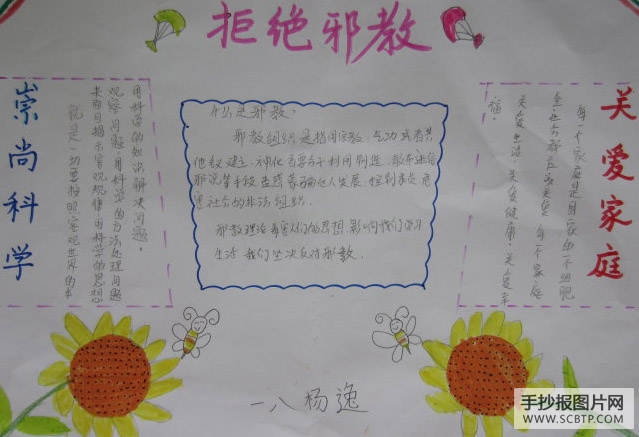 拒绝邪教
崇尚科学
用科学的知识解决问题,
观察问题用科学的方法处理问题
来面目揭示客观规律用科学的思想
就是一切要按照客观世界的本
什么是邪教:
邪教组织是指冒用宗教、气功或者其
他名义建立、神化首要分子利用制造、散布迷信
邪说等手段蛊惑蒙骗他人发展、控制成员危
害社会的非法组织.
邪教理论毒害人们的思想,影响我们学习
生活 我们坚决反对邪教.
关爱家庭
每一个家庭是国家的一个细胞
全社会都应该关爱每一个家庭
关爱生活,关爱健康,关爱幸
福.
一八 杨逸
手抄报图片网
WWW.SCBTP.COM